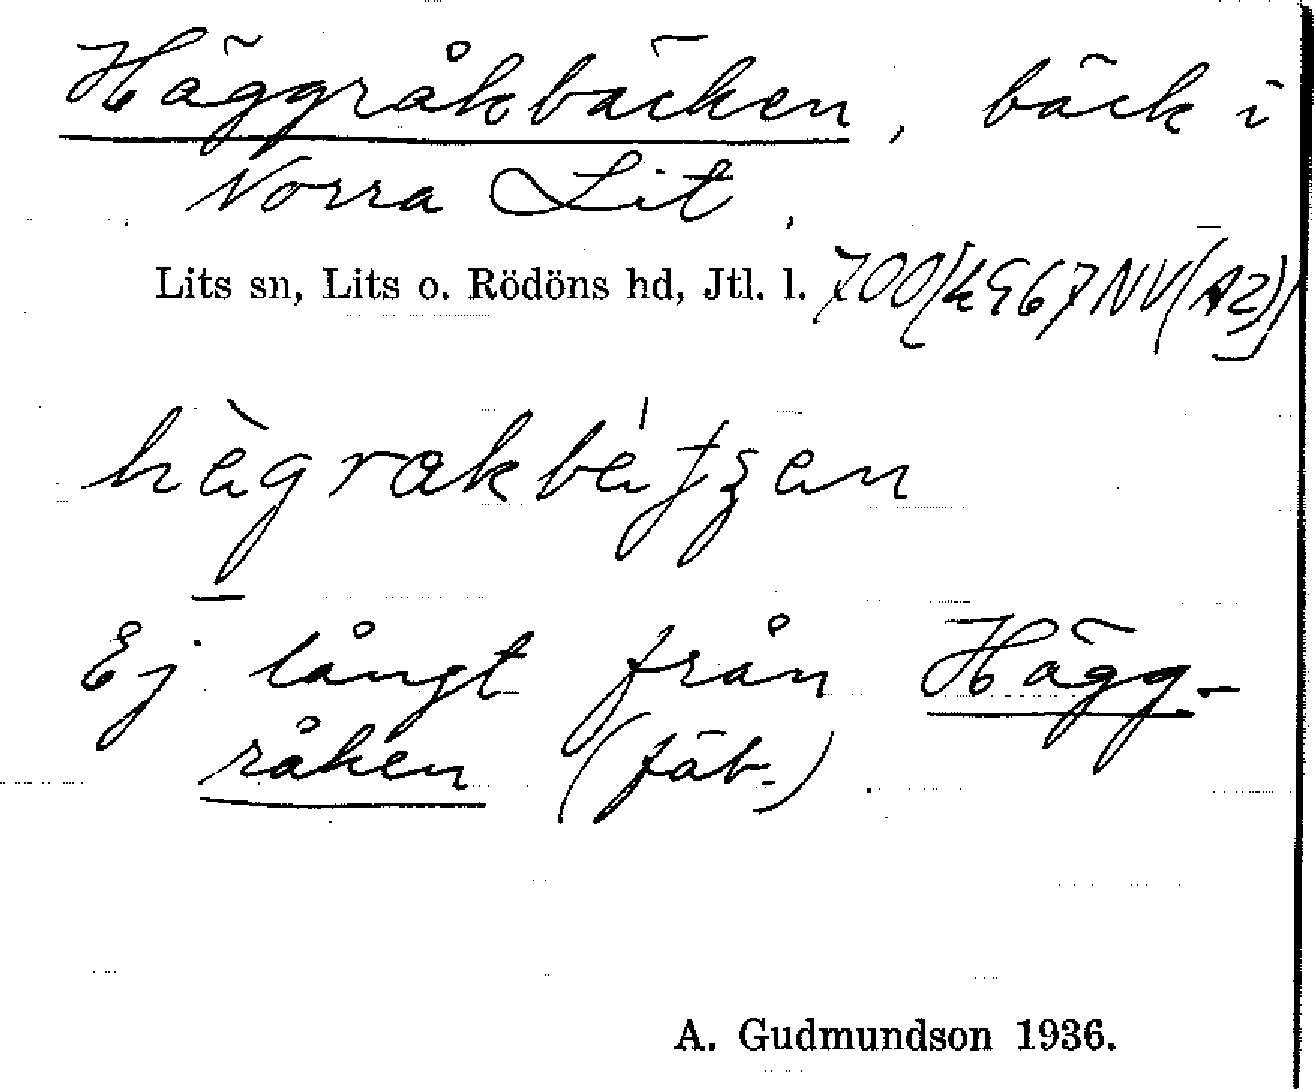 Häggråkbäcken, bäck i
Norra Lit.
Lits sn, Lits o. Rödöns hd, Jtl. l. 700/4967 NV (A2)
Ej långt från Hägg-
råken (fäb.)
A. Gudmundson 1936.